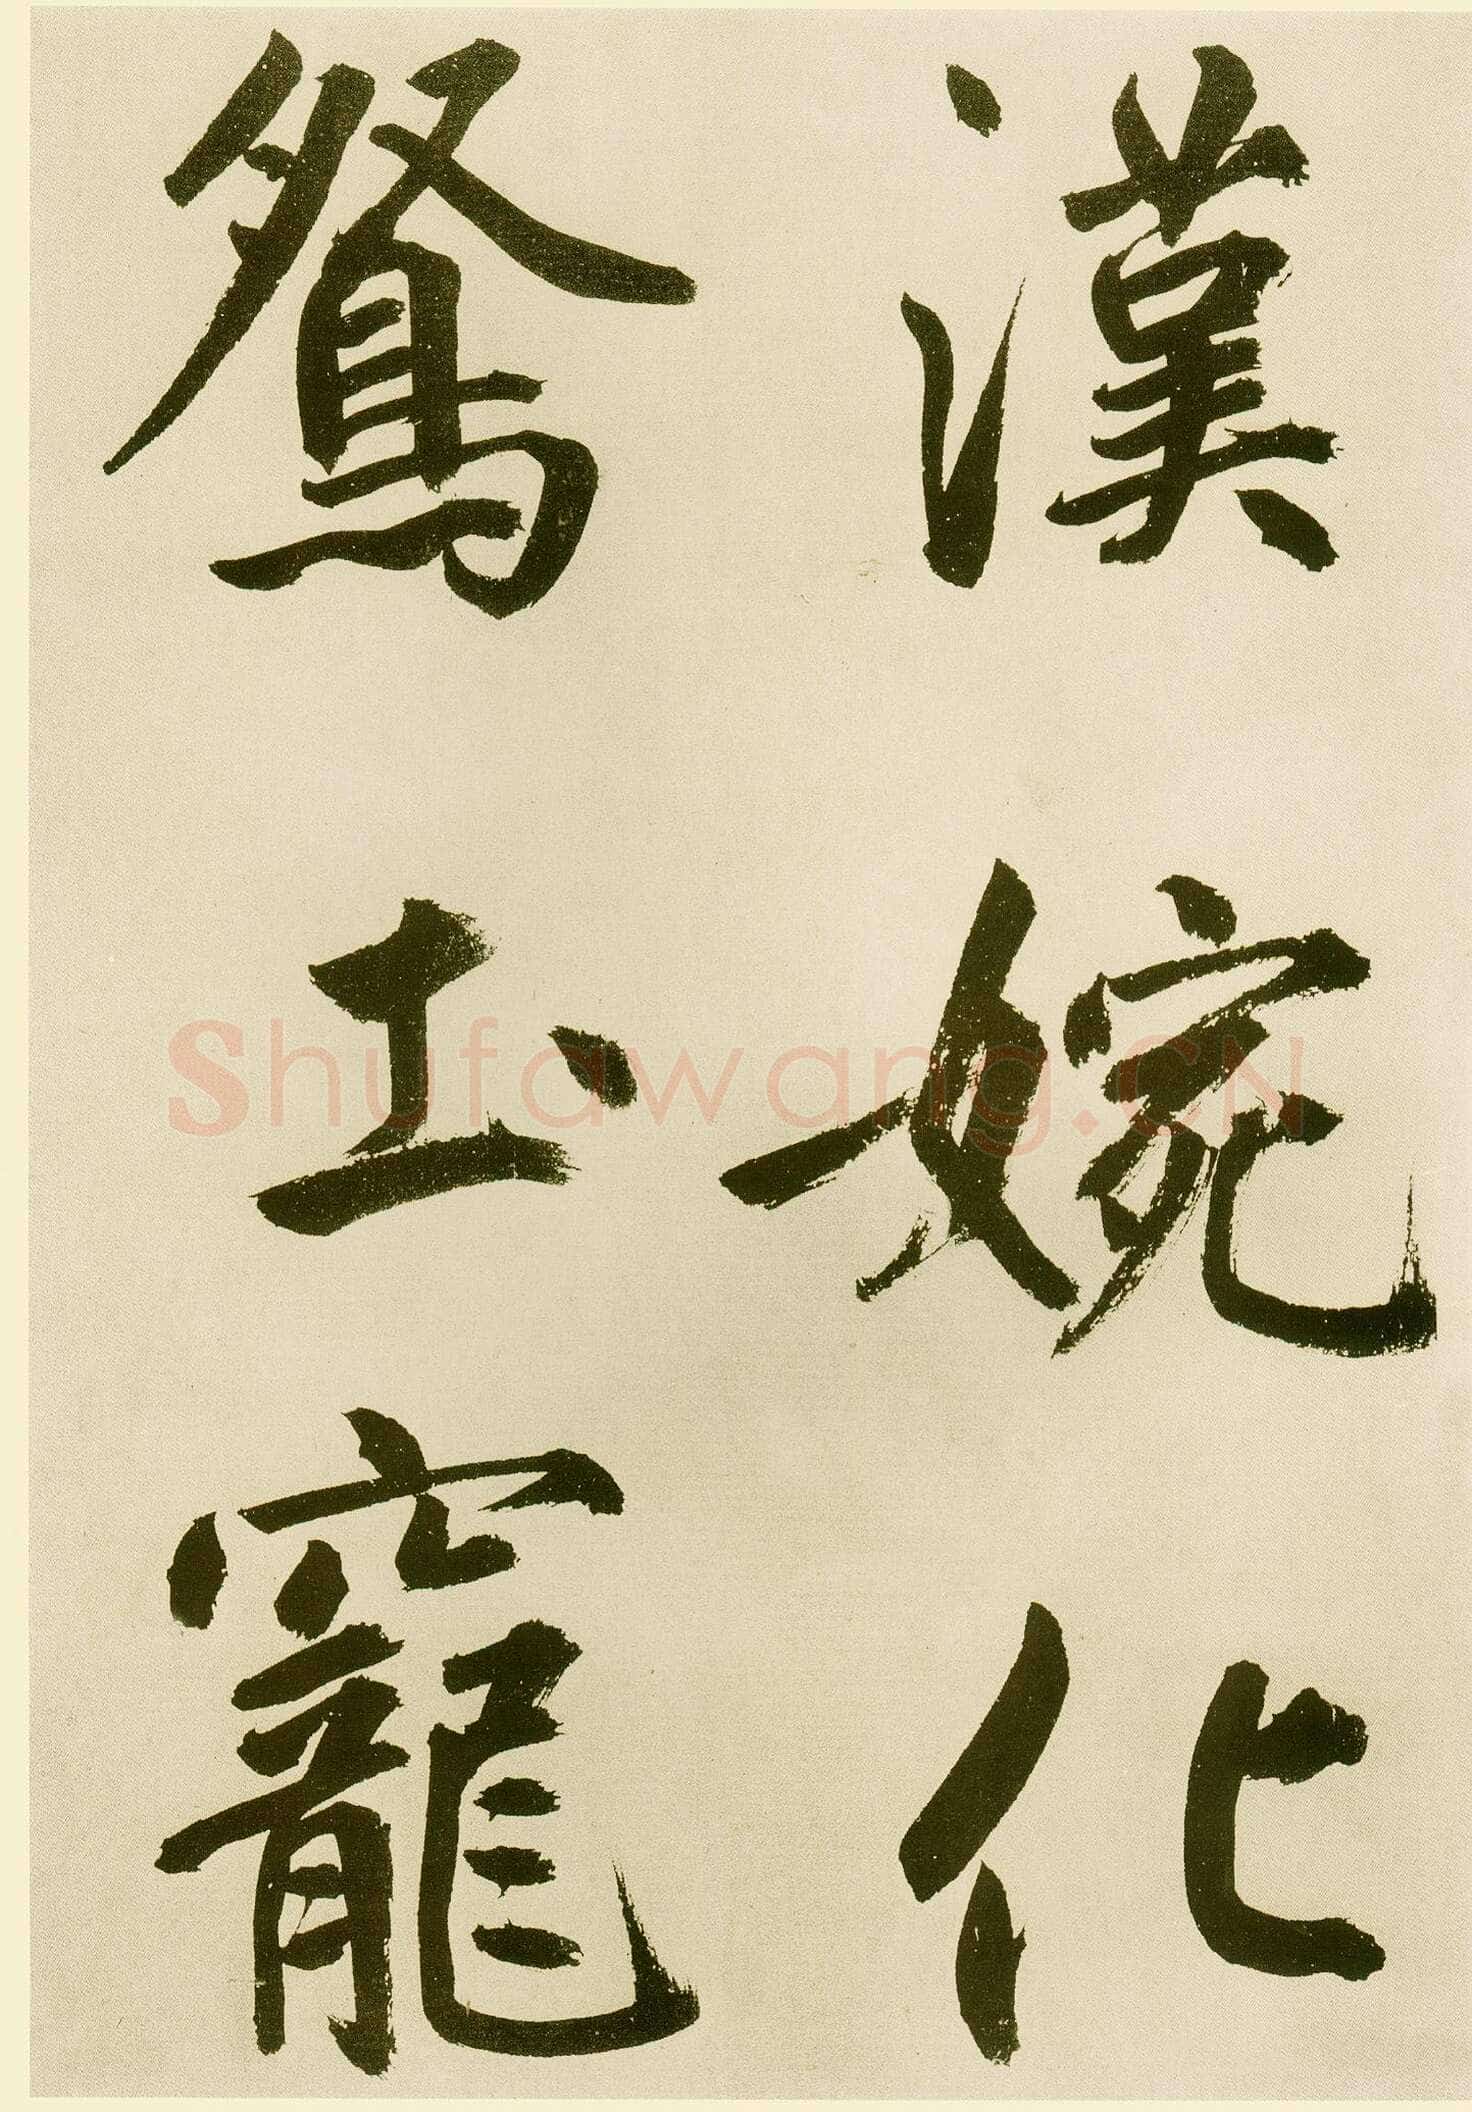 漢婉化
鴛土竉
Shufawang.CN